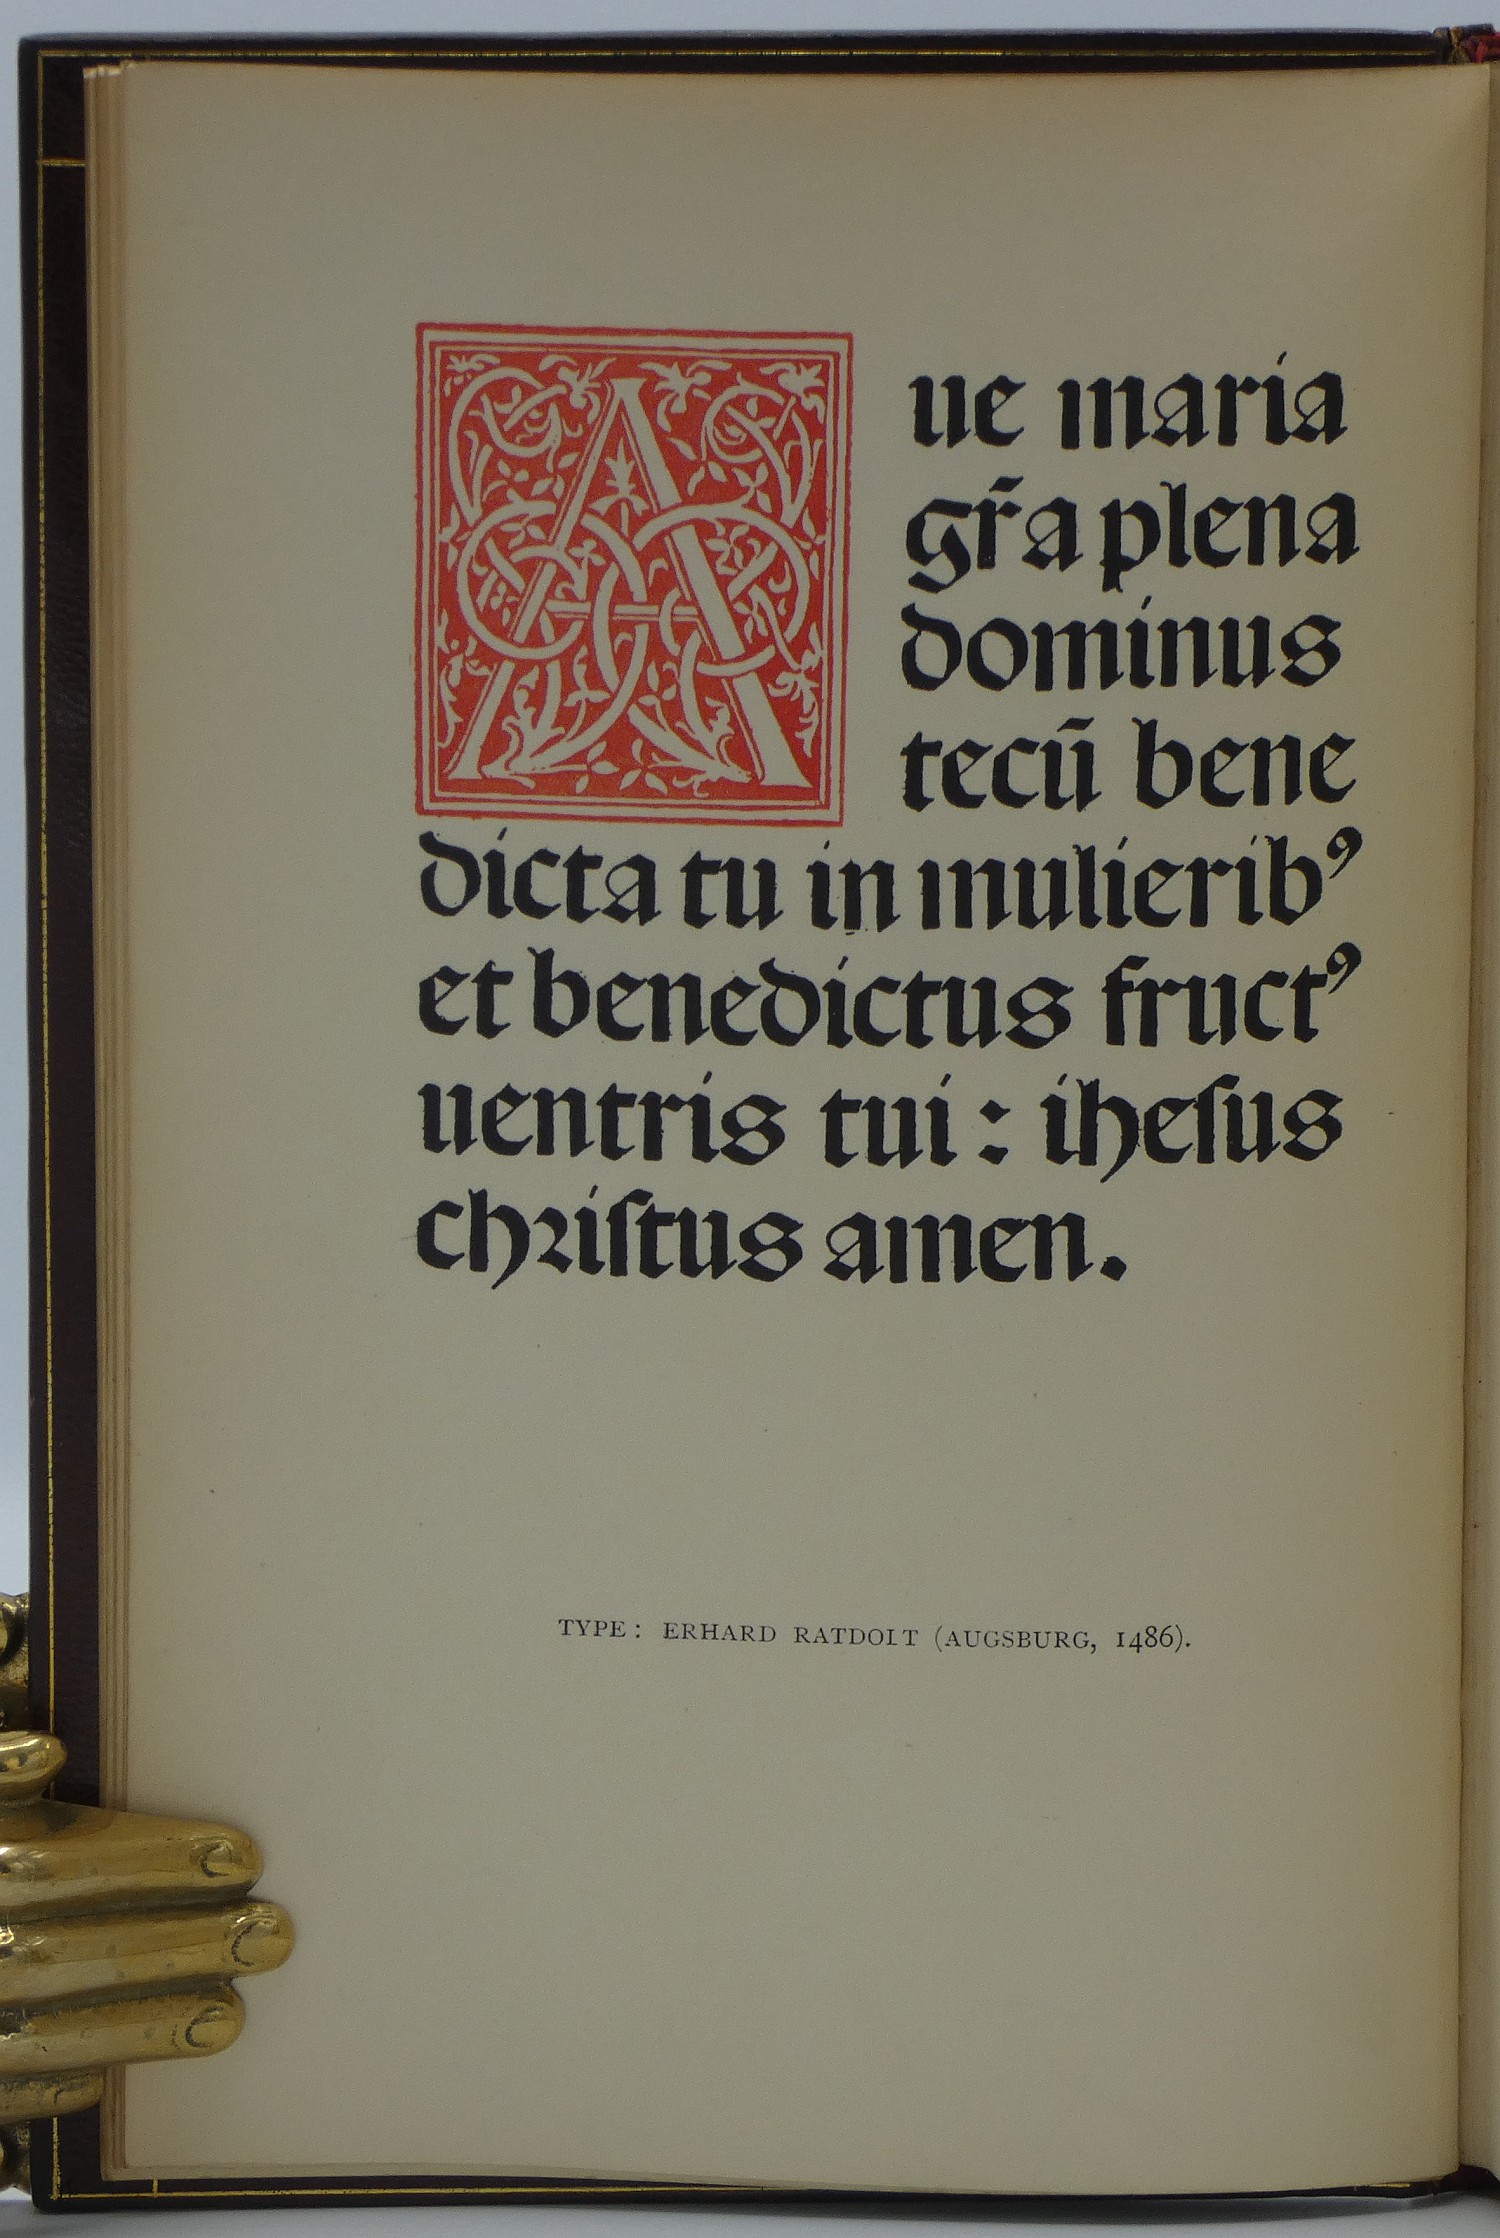 Aue maria
gr̃a plena
dominus
tecū bene
dicta tu in mulieribꝰ
et benedictus fructꝰ
uentris tui : iheſus
chriſtus amen.
TYPE: ERHARD RATDOLT (AUGSBURG, 1486).